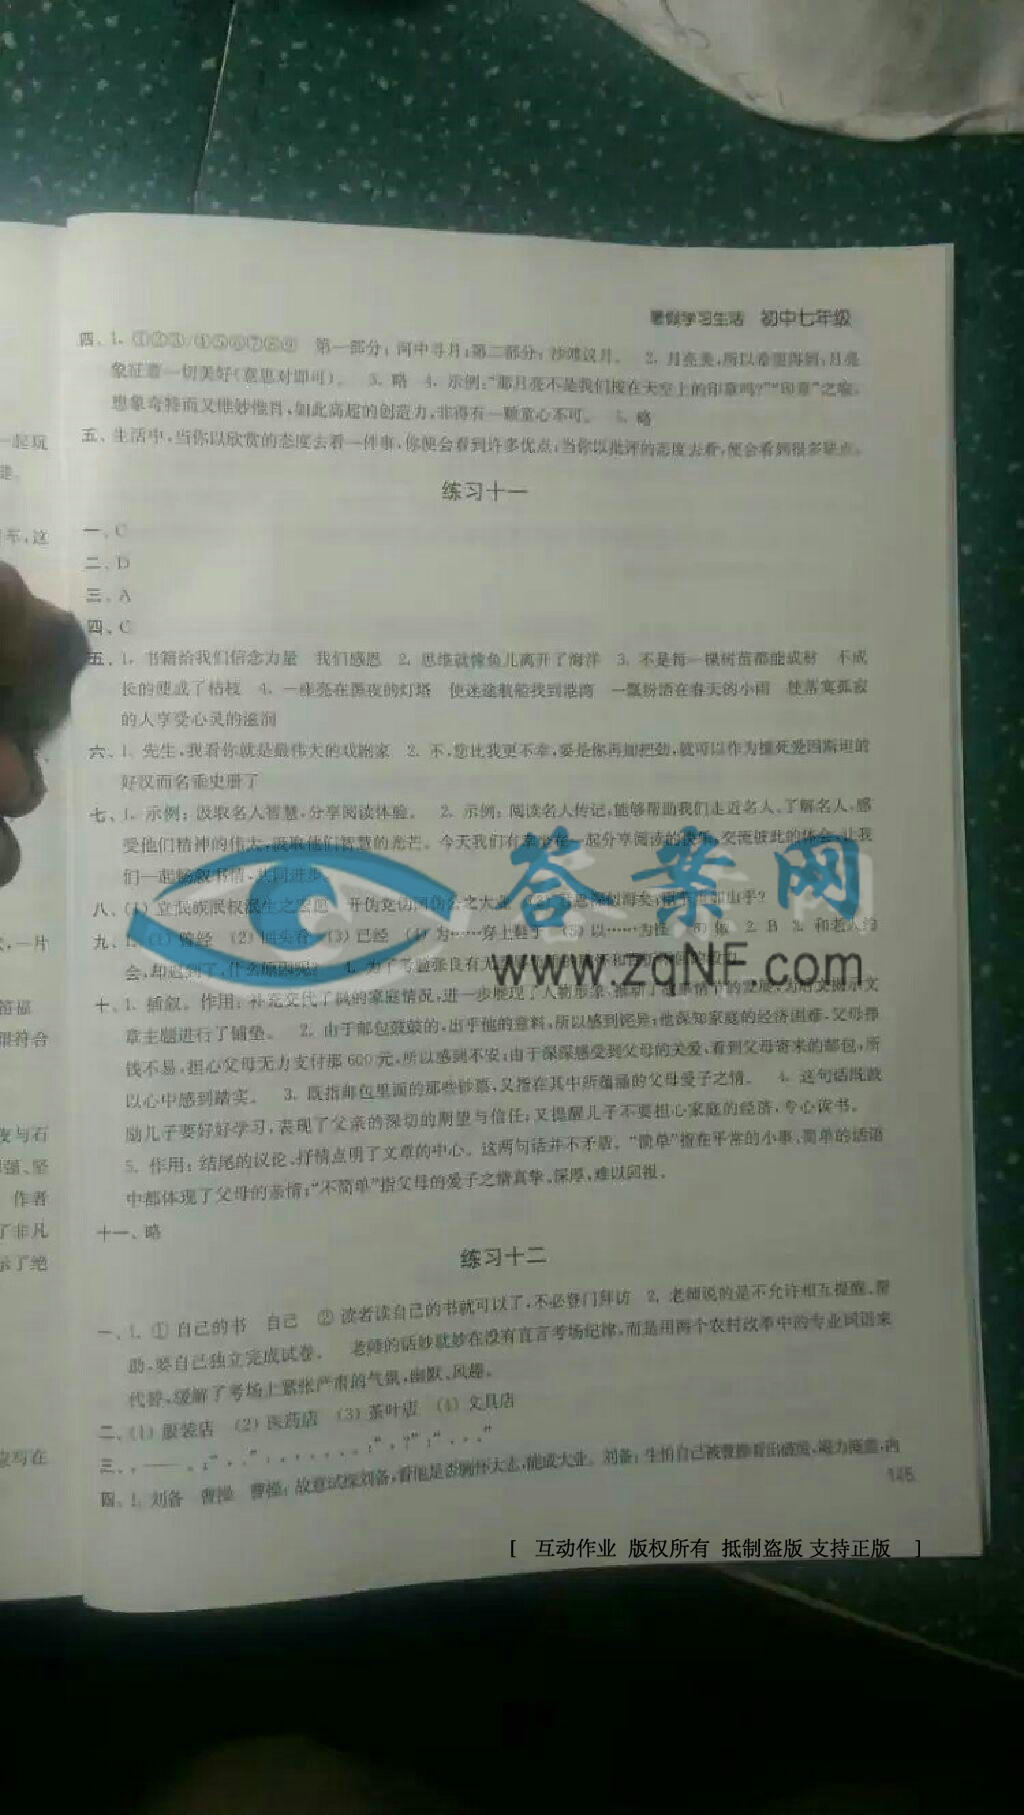 暑假学习生活 初中七年级
四、1. ①②③/④⑤⑥⑦⑧⑨ 第一部分:河中寻月;第二部分:沙滩议月。 2. 月亮美,所以希望得到;月亮
象征着一切美好(意思对即可)。 3. 略 4. 示例:“那月亮不是我们按在天空上的印章吗?”“印章”之喻,
想象奇特而又惟妙惟肖,如此高超的创造力,非得有一颗童心不可。 5. 略
五、生活中,当你以欣赏的态度去看一件事,你便会看到许多优点;当你以批评的态度去看,便会看到很多缺点。
练习十一
一、C
二、D
三、A
四、C
五、1. 书籍给我们信念力量 我们感恩 2. 思维就像鱼儿离开了海洋 3. 不是每一棵树苗都能成材 不成
长的便成了枯枝 4. 一座亮在黑夜的灯塔 使迷途载船找到港湾 一瓢粉洒在春天的小雨 使落寞孤寂
的人享受心灵的滋润
六、1. 先生,我看你就是最伟大的戏剧家 2. 不,您比我更不幸,要是你再加把劲,就可以作为撞死爱因斯坦的
好汉而名垂史册了
七、1. 示例:汲取名人智慧,分享阅读体验。 2. 示例:阅读名人传记,能够帮助我们走近名人、了解名人,感
受他们精神的伟大,汲取他们智慧的光芒。今天我们有幸坐在一起分享阅读的快乐,交流彼此的体会,让我
们一起畅叙书情,共同进步。
八、(1)
九、1. (1) 曾经 (2) 回头看 (3) 已经 (4) 为……穿上鞋子 (5) 以……为怪 (6) 做 2. B 3. 和老人约
会,却迟到了,什么原因呢? 4. 为了考验张良有无
十、1. 插叙。作用:补充交代了我的家庭情况,进一步展现了人物形象,推动了故事情节的发展,为后文揭示文
章主题进行了铺垫。 2. 由于邮包鼓鼓的,出乎他的意料,所以感到诧异;他深知家庭的经济困难,父母挣
钱不易,担心父母无力支付那600元,所以感到不安;由于深深感受到父母的关爱,看到父母寄来的邮包,所
以心中感到踏实。 3. 既指邮包里面的那些钞票,又指在其中所蕴涵的父母爱子之情。 4. 这句话既鼓
励儿子要好好学习,表现了父亲的深切的期望与信任;又提醒儿子不要担心家庭的经济,专心读书。
5. 作用:结尾的议论、抒情点明了文章的中心。这两句话并不矛盾。“简单”指在平常的小事、简单的话语
中都体现了父母的亲情;“不简单”指父母的爱子之情真挚、深厚,难以回报。
十一、略
练习十二
一、1. ① 自己的书 自己 ② 读者读自己的书就可以了,不必登门拜访 2. 老师说的是不允许相互提醒、帮
助,要自己独立完成试卷。 老师的话妙就妙在没有直言考场纪律,而是用两个农村改革中的专业词语来
代替,缓解了考场上紧张严肃的气氛,幽默、风趣。
二、(1) 服装店 (2) 医药店 (3) 茶叶店 (4) 文具店
三、
四、1. 刘备 曹操 曹操:故意试探刘备,看他是否胸怀大志,能成大业。刘备:生怕自己被曹操看出破绽,竭力掩盖,内
145
一起玩
车,这
,一片
很符合
夜与石
作者
了非凡
示了绝
写在
答案网
www.zqNF.com
[ 互动作业 版权所有 抵制盗版 支持正版 ]